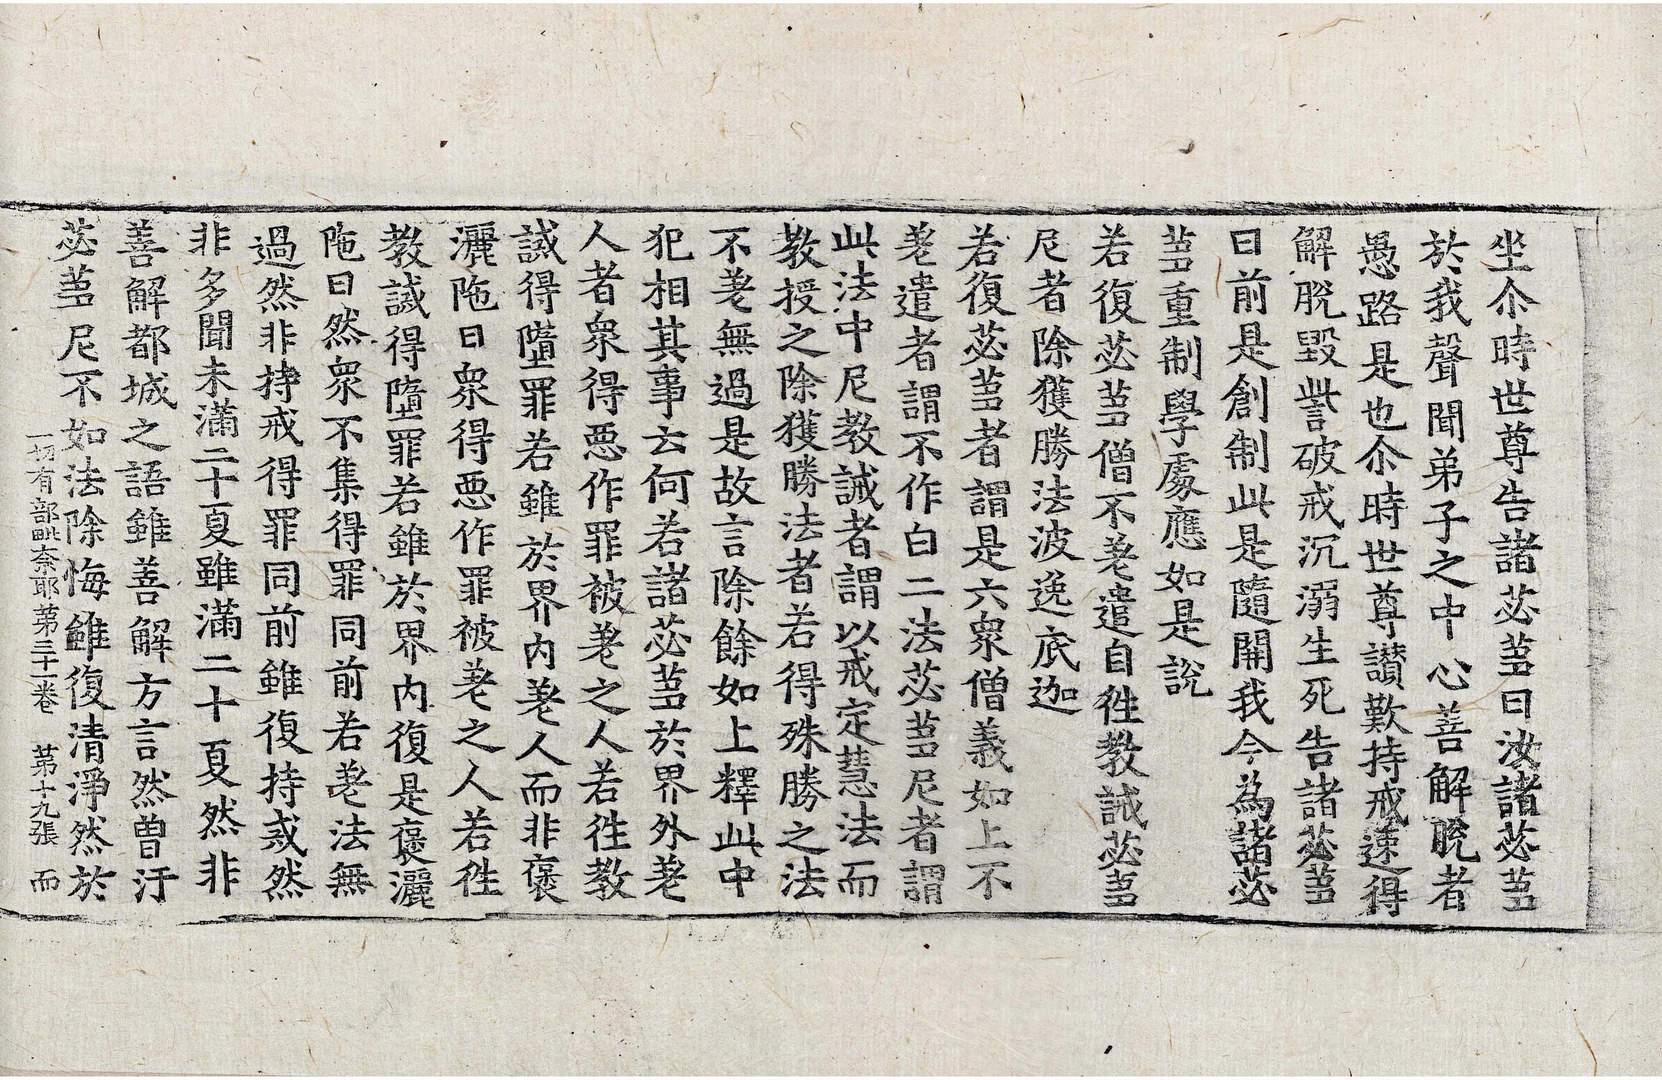 坐尒時世尊告諸苾蒭曰汝諸苾蒭
於我聲聞弟子之中心善解脫者
愚路是也尒時世尊讃歎持戒速得
解脫毀訾破戒沉溺生死告諸苾蒭
曰前是創制此是隨開我今為諸苾
蒭重制學處應如是說
若復苾蒭僧不差遣自徃教誡苾蒭
尼者除獲勝法波逸底迦
若復苾蒭者謂是六衆僧義如上不
差遣者謂不作白二法苾蒭尼者謂
此法中尼教誡者謂以戒定慧法而
教授之除獲勝法者若得殊勝之法
不差無過是故言除餘如上釋此中
犯相其事云何若諸苾蒭於界外差
人者衆得惡作罪被差之人若徃教
誡得墮罪若雖於界內差人而非褒
灑陁日衆得惡作罪被差之人若徃
教誡得墮罪若雖於界內復是褒灑
陁日然衆不集得罪同前若差法無
過然非持戒得罪同前雖復持戒然
非多聞未滿二十夏雖滿二十夏然非
善解都城之語雖善解方言然曾汙
苾蒭尼不如法除悔雖復清淨然於
一切有部毗奈耶第三十一卷 第十九張 而